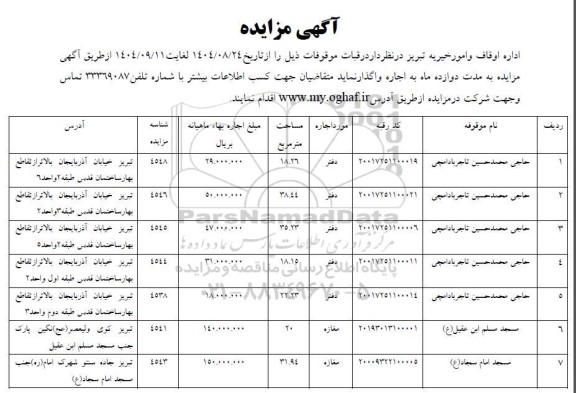 آگهی مزایده
اداره اوقاف وامورخیریه تبریز درنظرداردرقبات موقوفات ذیل را ازتاریخ۱۴۰۴/۰۸/۲۴ لغایت۱۴۰۴/۰۹/۱۱ ازطریق آگهی
مزایده به مدت دوازده ماه به اجاره واگذارنماید متقاضیان جهت کسب اطلاعات بیشتر با شماره تلفن۳۳۳۶۹۰۸۷ تماس
وجهت شرکت درمزایده ازطریق آدرسwww.my.oghaf.ir اقدام نمایند.
ردیف نام موقوفه کد رقبه مورداجاره مساحت مترمربع مبلغ اجاره بهاء ماهیانه بریال شناسه مزایده آدرس
۱ حاجی محمدحسین تاجربادامچی ۲۰۰۱۷۲۵۱۲۰۰۰۱۹ دفتر ۱۸.۲۶ ۲۹.۰۰۰.۰۰۰ ۴۵۴۸ تبریز خیابان آذربایجان بالاترازتقاطع
بهارساختمان قدس طبقه۲واحد۶
۲ حاجی محمدحسین تاجربادامچی ۲۰۰۱۷۲۵۱۱۰۰۰۲۱ دفتر ۳۸.۴۴ ۵۰.۰۰۰.۰۰۰ ۴۵۴۶ تبریز خیابان آذربایجان بالاترازتقاطع
بهارساختمان قدس طبقه۳واحد۲
۳ حاجی محمدحسین تاجربادامچی ۲۰۰۱۷۲۵۱۱۰۰۰۰۶ دفتر ۳۵.۲۳ ۴۷.۰۰۰.۰۰۰ ۴۵۴۵ تبریز خیابان آذربایجان بالاترازتقاطع
بهارساختمان قدس طبقه۲واحد۵
۴ حاجی محمدحسین تاجربادامچی ۲۰۰۱۷۲۵۱۱۰۰۰۱۱ دفتر ۱۸.۱۵ ۳۱.۰۰۰.۰۰۰ ۴۵۴۴ تبریز خیابان آذربایجان بالاترازتقاطع
بهارساختمان قدس طبقه اول واحد۲
۵ حاجی محمدحسین تاجربادامچی ۲۰۰۱۷۲۵۱۱۰۰۰۱۴ دفتر ۲۲.۲۳ ۱۸.۰۰۰.۰۰۰ ۴۵۳۸ تبریز خیابان آذربایجان بالاترازتقاطع
بهارساختمان قدس طبقه دوم واحد۳
۶ مسجد مسلم ابن عقیل(ع) ۲۰۱۹۳۰۱۳۱۰۰۰۰۱ مغازه ۲۰ ۱۴۰.۰۰۰.۰۰۰ ۴۵۴۱ تبریز کوی ولیعصر(عج)نگین پارک
جنب مسجد مسلم ابن عقیل
۷ مسجد امام سجاد(ع) ۲۰۰۰۹۳۲۲۱۰۰۰۰۵ مغازه ۳۱.۹۴ ۱۵۰.۰۰۰.۰۰۰ ۴۵۴۳ تبریز جاده سنتو شهرک امام(ره)جنب
مسجد امام سجاد(ع)
ParsNamadData
مرکز فرآوری اطلاعات پارس نماد داده ها
پایگاه اطلاع رسانی مناقصه و مزایده
۰۲۱-۸۸۳۴۹۶۷۰-۵